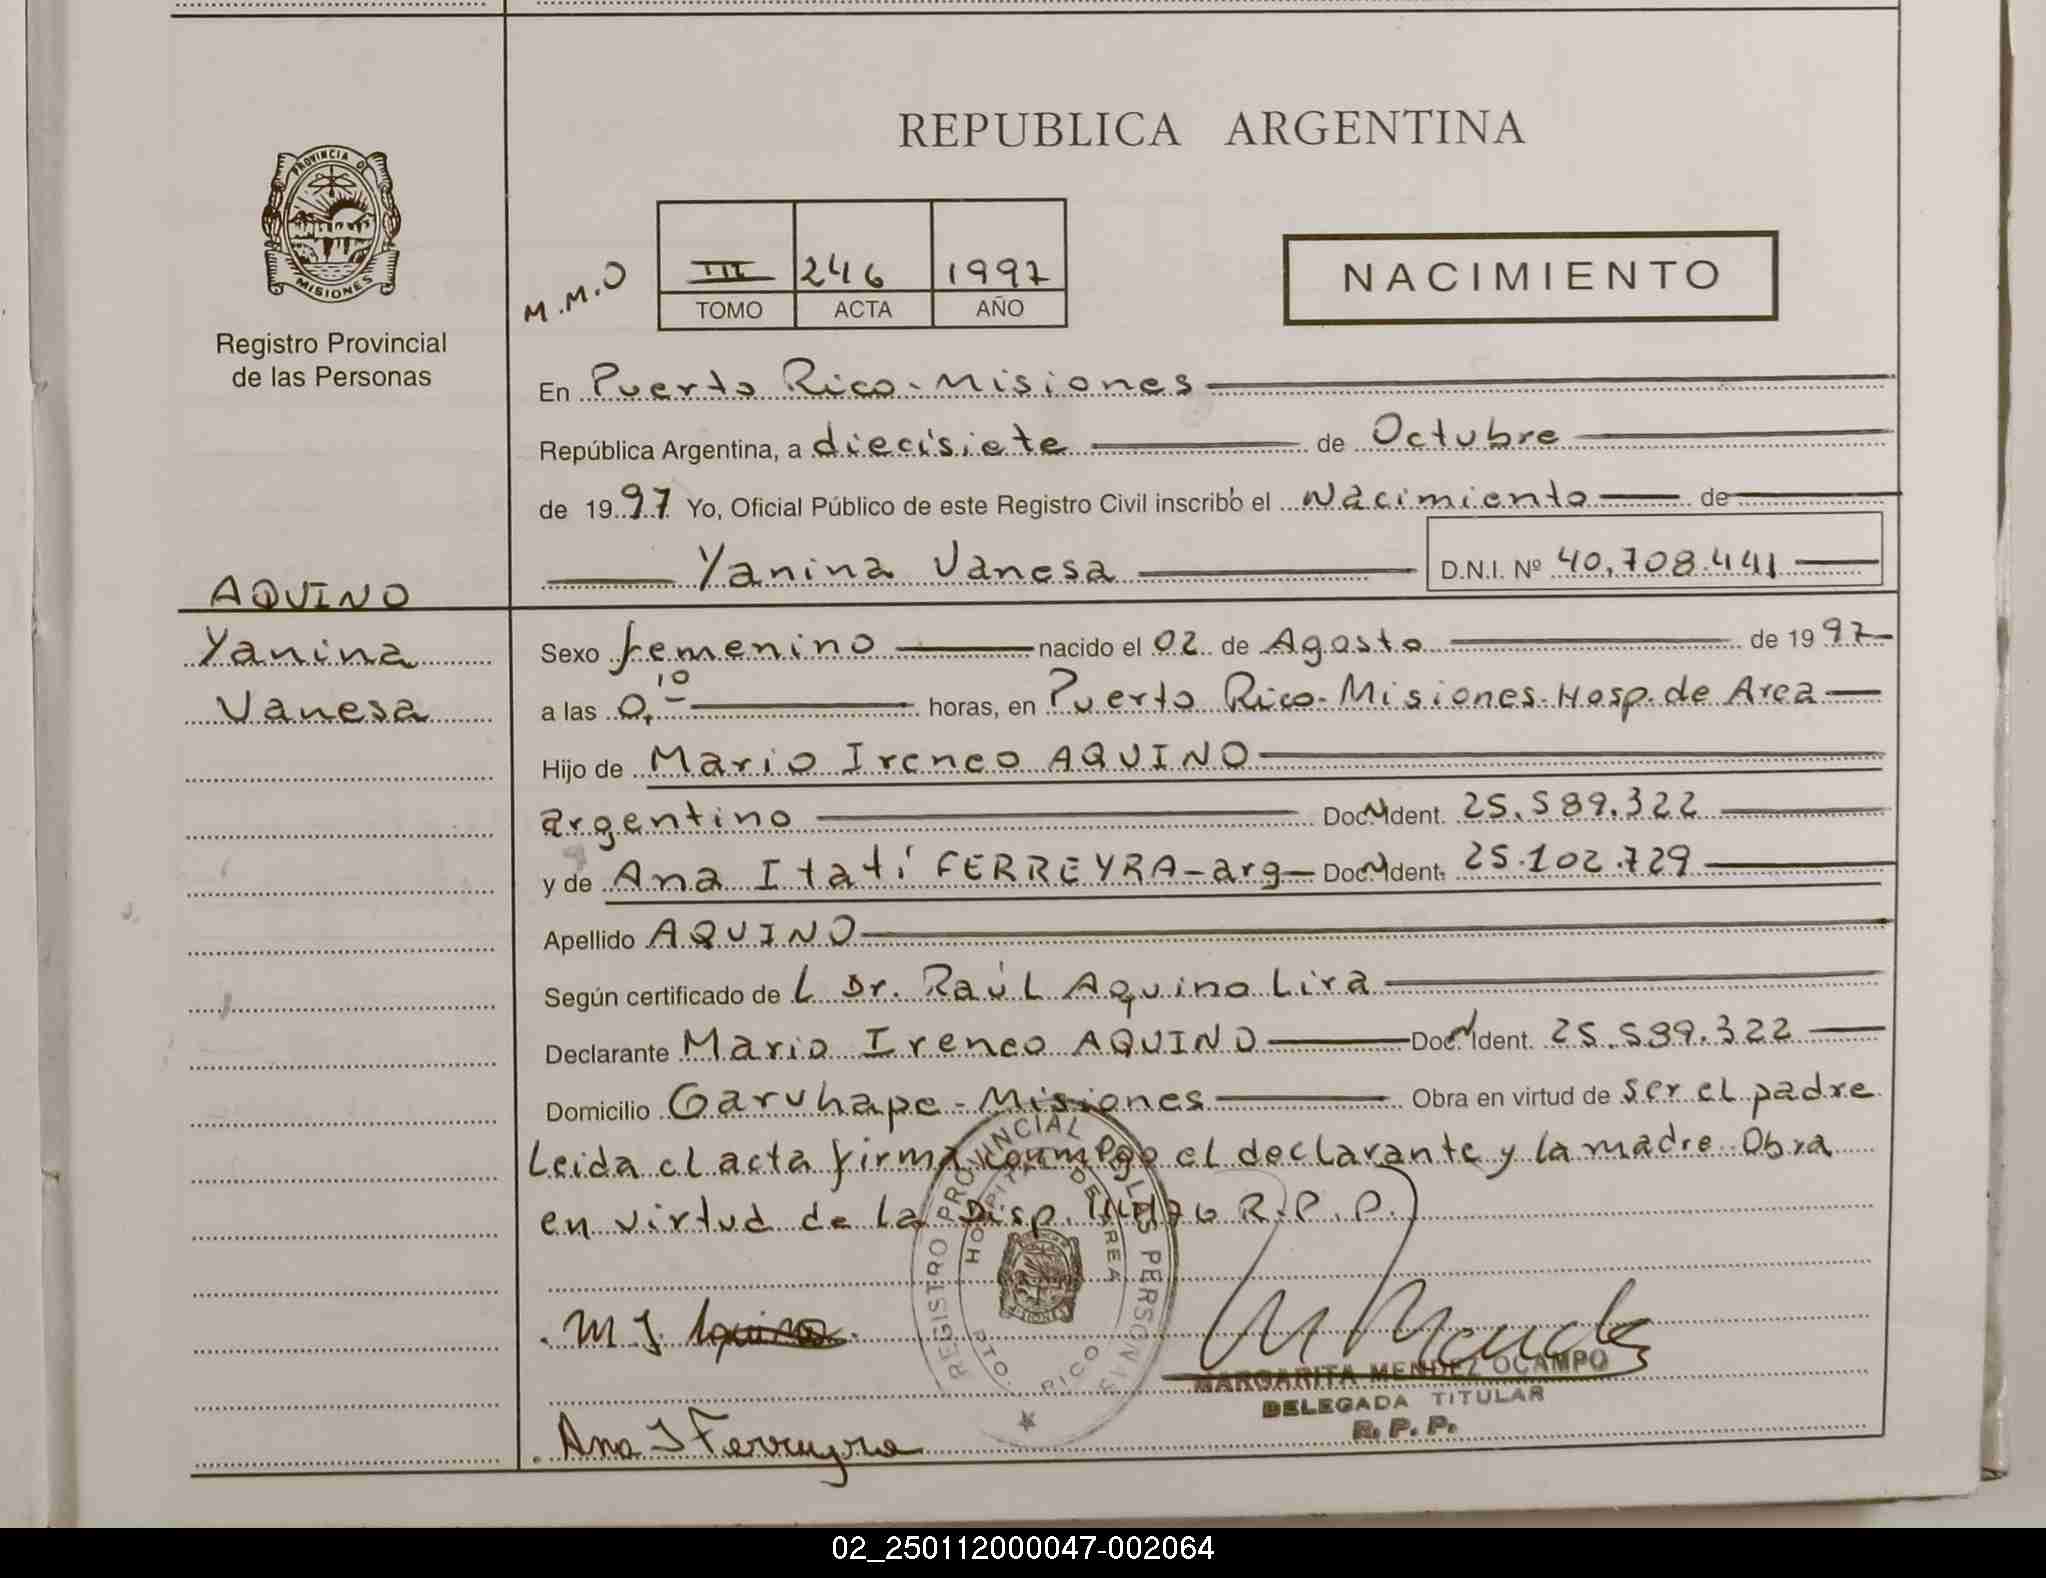 REPUBLICA ARGENTINA
PROVINCIA DE
MISIONES
Registro Provincial
de las Personas
M.M.O
III 246 1997
TOMO ACTA AÑO
NACIMIENTO
En Puerto Rico-Misiones
República Argentina, a diecisiete de Octubre
de 1997 Yo, Oficial Público de este Registro Civil inscribo el Nacimiento de
Yanina Vanesa D.N.I. Nº 40.708.441
AQUINO
Yanina
Vanesa
Sexo femenino nacido el 02 de Agosto de 1997
a las 0,10 horas, en Puerto Rico-Misiones-Hosp. de Area
Hijo de Mario Ireneo AQUINO
argentino Doc. N Ident. 25.589.322
y de Ana Itatí FERREYRA-arg Doc. N Ident. 25.102.729
Apellido AQUINO
Según certificado de L Dr. Raúl Aquino Lira
Declarante Mario Ireneo AQUINO Doc. N Ident. 25.589.322
Domicilio Garuhape-Misiones Obra en virtud de ser el padre
Leida el acta firma conmigo el declarante y la madre. Obra
en virtud de la Disp. R.P.P.
REGISTRO PROVINCIAL DE LAS PERSONAS
HOSPITAL DE AREA
PTO. RICO
M I Aquino
MARGARITA MENDEZ OCAMPO
DELEGADA TITULAR
R.P.P.
Ana I Ferreyra
02_250112000047-002064